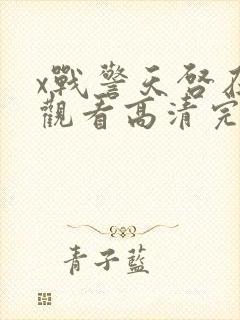 x戰警天啓在
觀看高清完
青子藍